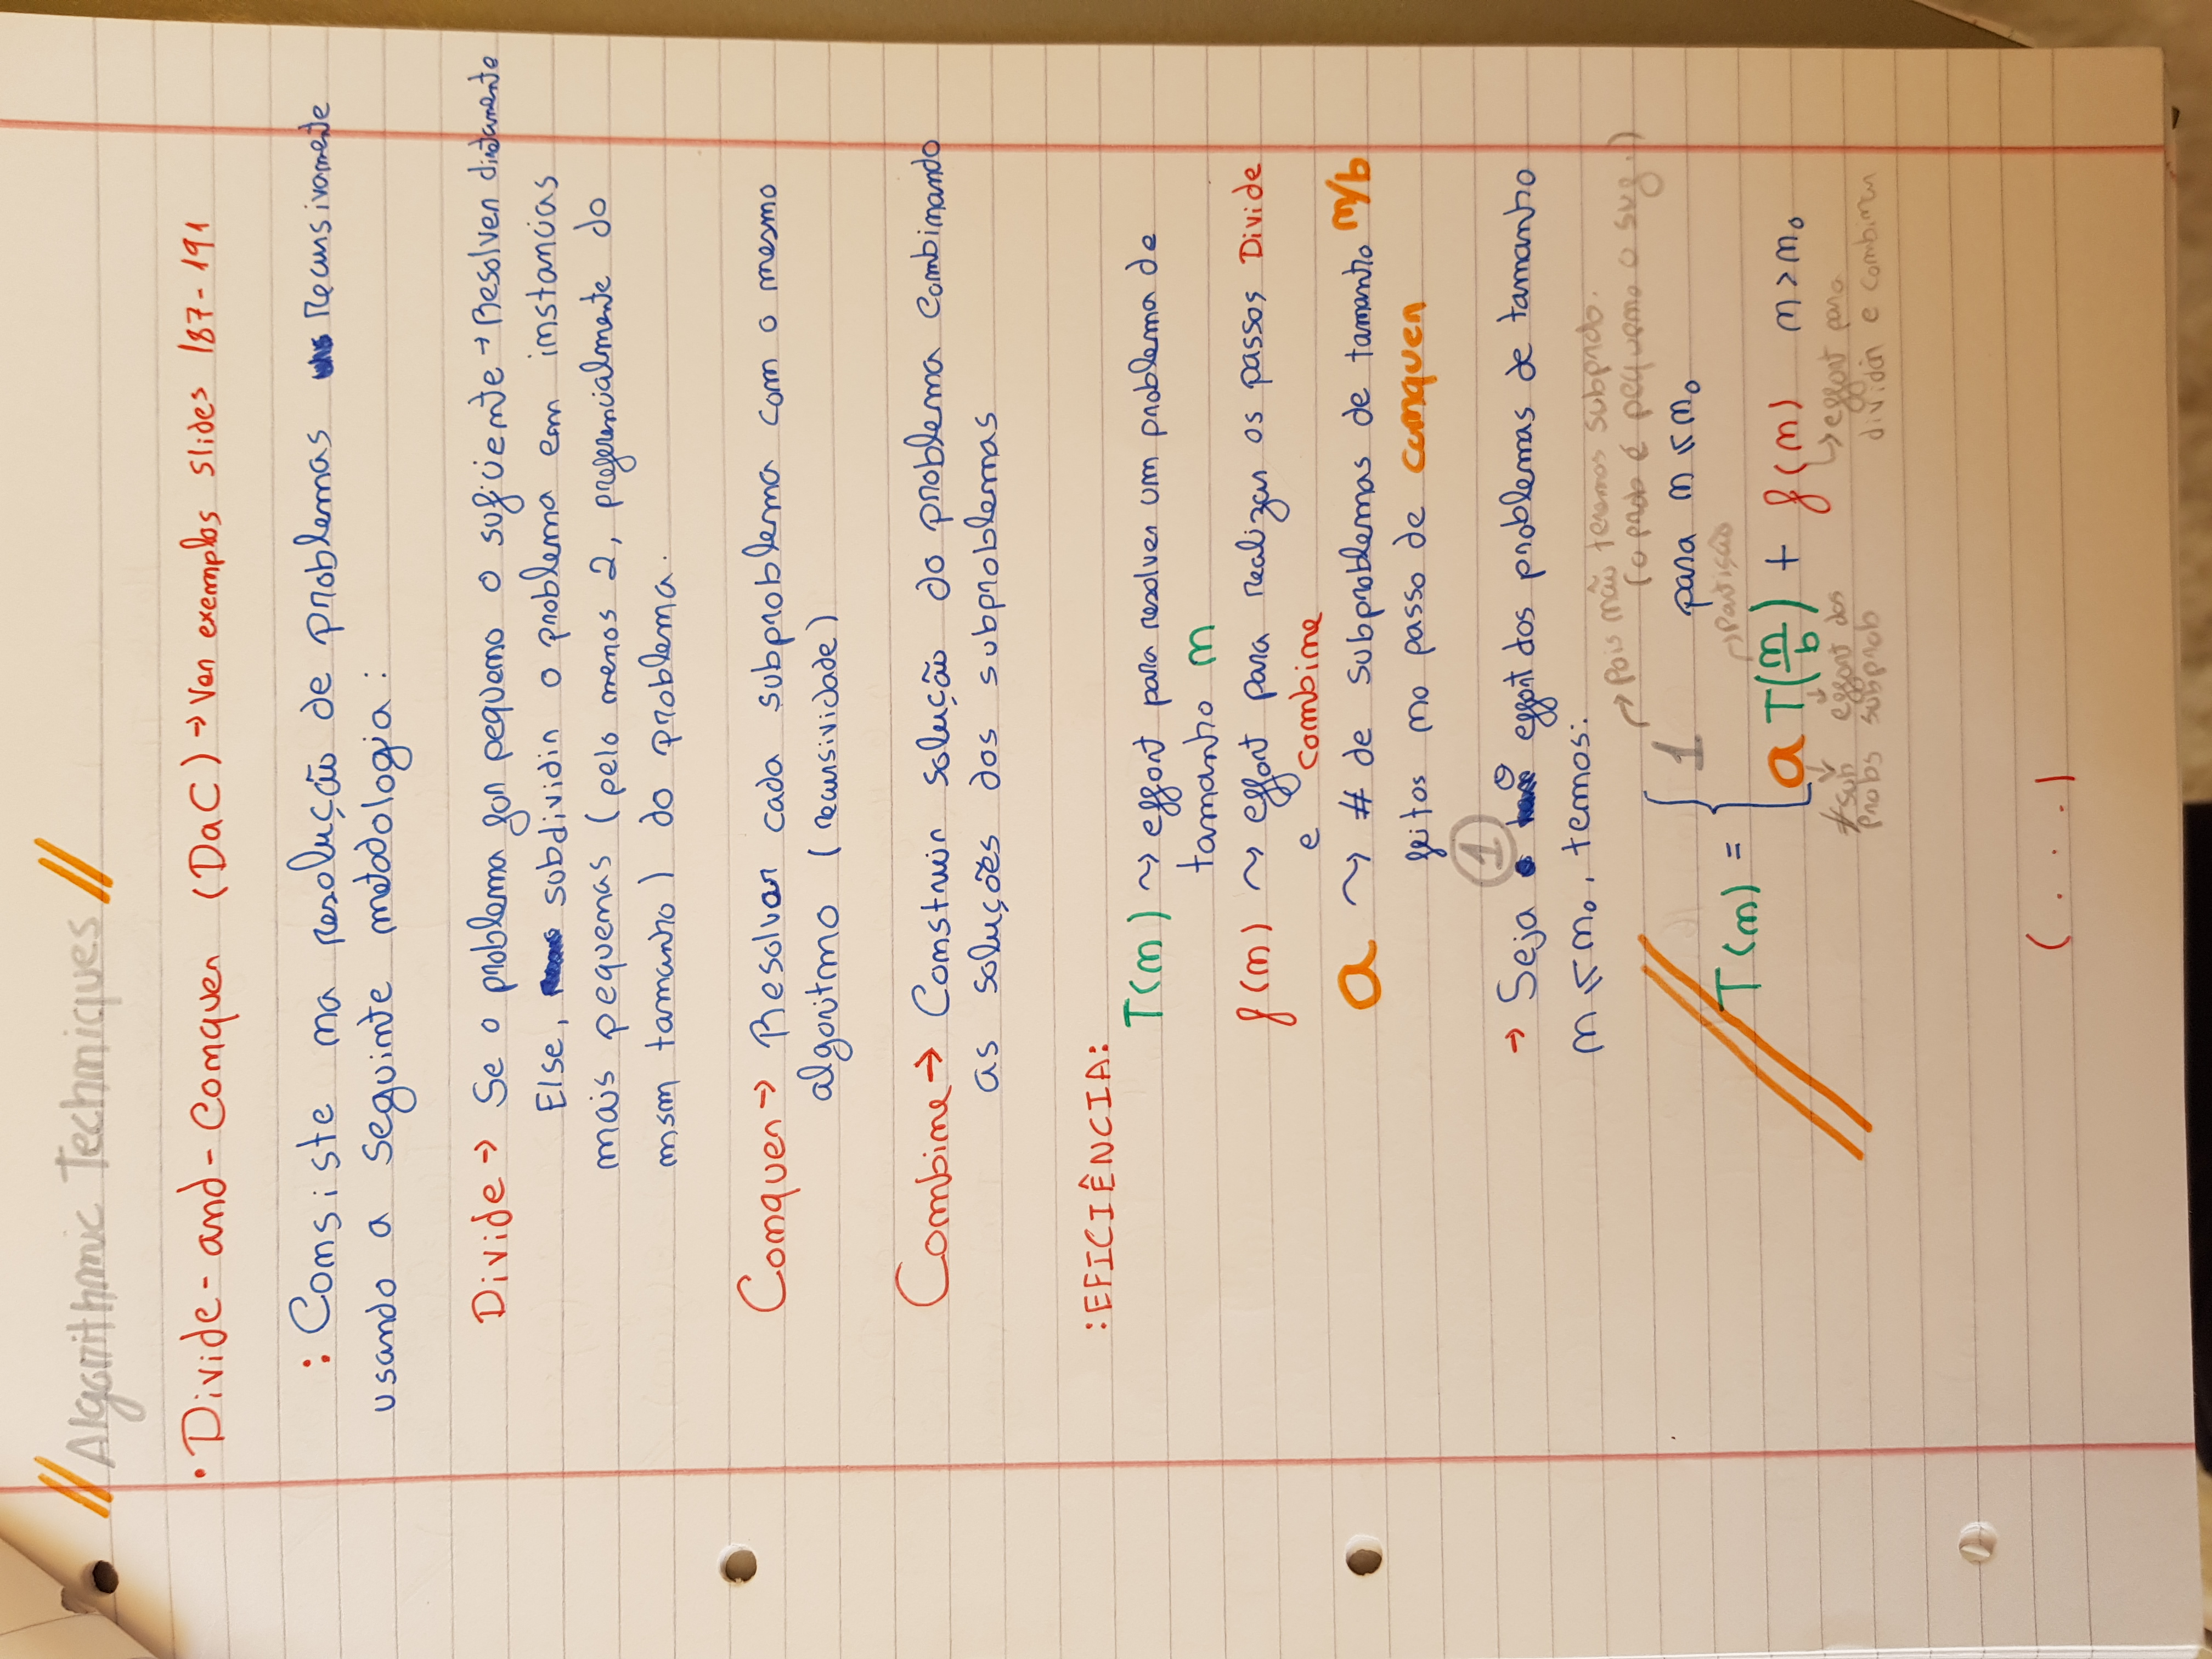 // Algorithmic Techniques //
• Divide-and-Conquer (DaC) → Ver exemplos slides 187-191
: Consiste na resolução de problemas recursivamente
usando a seguinte metodologia:
Divide → Se o problema for pequeno o suficiente → Resolver diretamente
Else, subdividir o problema em instancias
mais pequenas (pelo menos 2, preferencialmente do
msm tamanho) do problema.
Conquer → Resolver cada subproblema com o mesmo
algoritmo (recursividade)
Combine → Construir solução do problema combinando
as soluções dos subproblemas
:EFICIÊNCIA:
T(n) ~> effort para resolver um problema de
tamanho n
f(n) ~> effort para realizar os passos Divide
e combine
a ~> # de subproblemas de tamanho n/b
feitos no passo de conquer
1
→ Seja o effort dos problemas de tamanho
n ≤ n₀, temos:
↱ Pois não teremos subprob.
(o prob é pequeno o suf.)
1 para n ≤ n₀
↱ Partição
T(n) = {
a T(n/b) + f(n) n > n₀
#sub effort dos ↳ effort para
probs subprob dividir e combinar
(...)